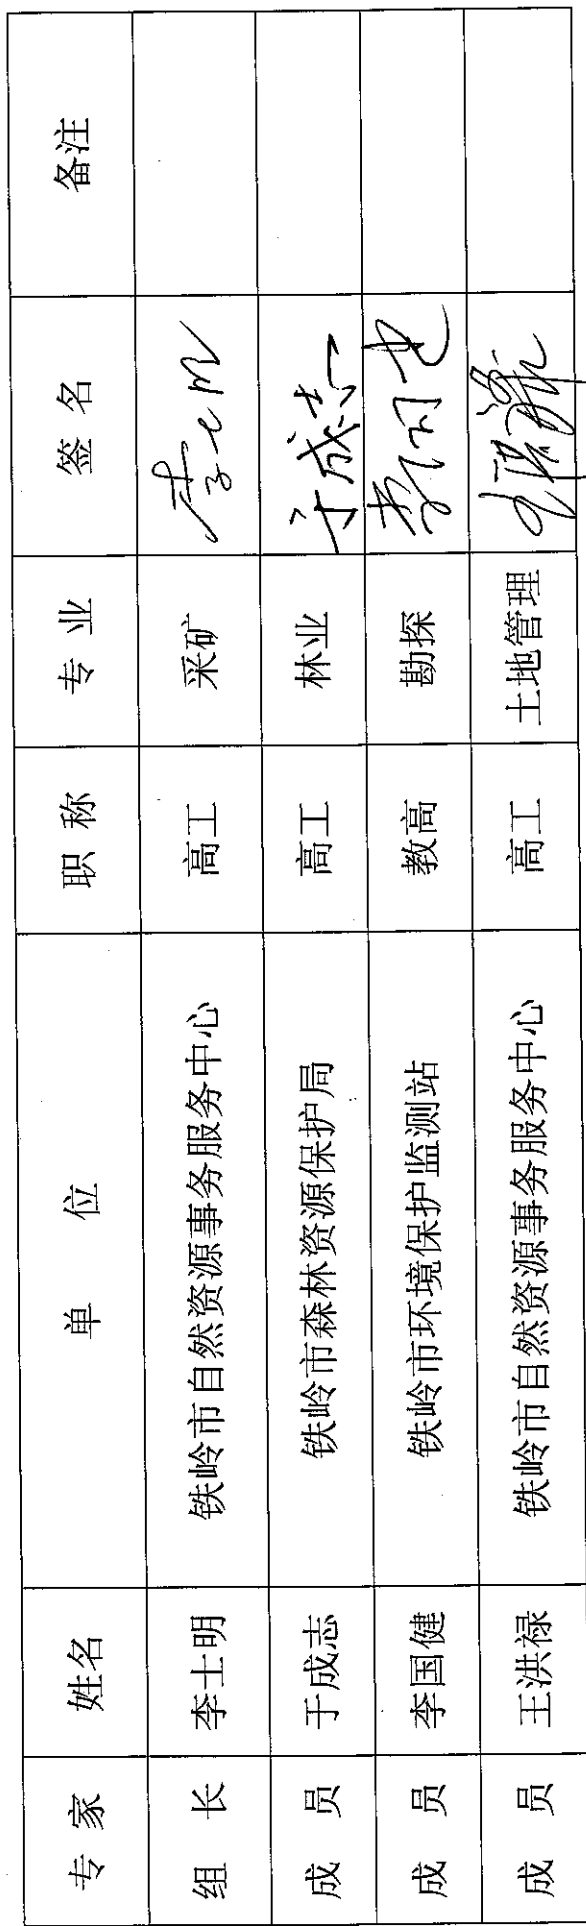 专家 姓名 单位 职称 专业 签名 备注
组长 李士明 铁岭市自然资源事务服务中心 高工 采矿
成员 于成志 铁岭市森林资源保护局 高工 林业 于成志
成员 李国健 铁岭市环境保护监测站 教高 勘探
成员 王洪禄 铁岭市自然资源事务服务中心 高工 土地管理